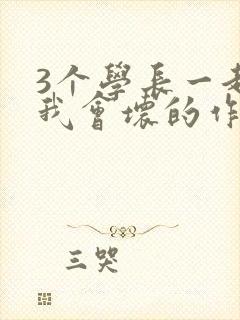 3个學長一起
我會壞的作
三哭